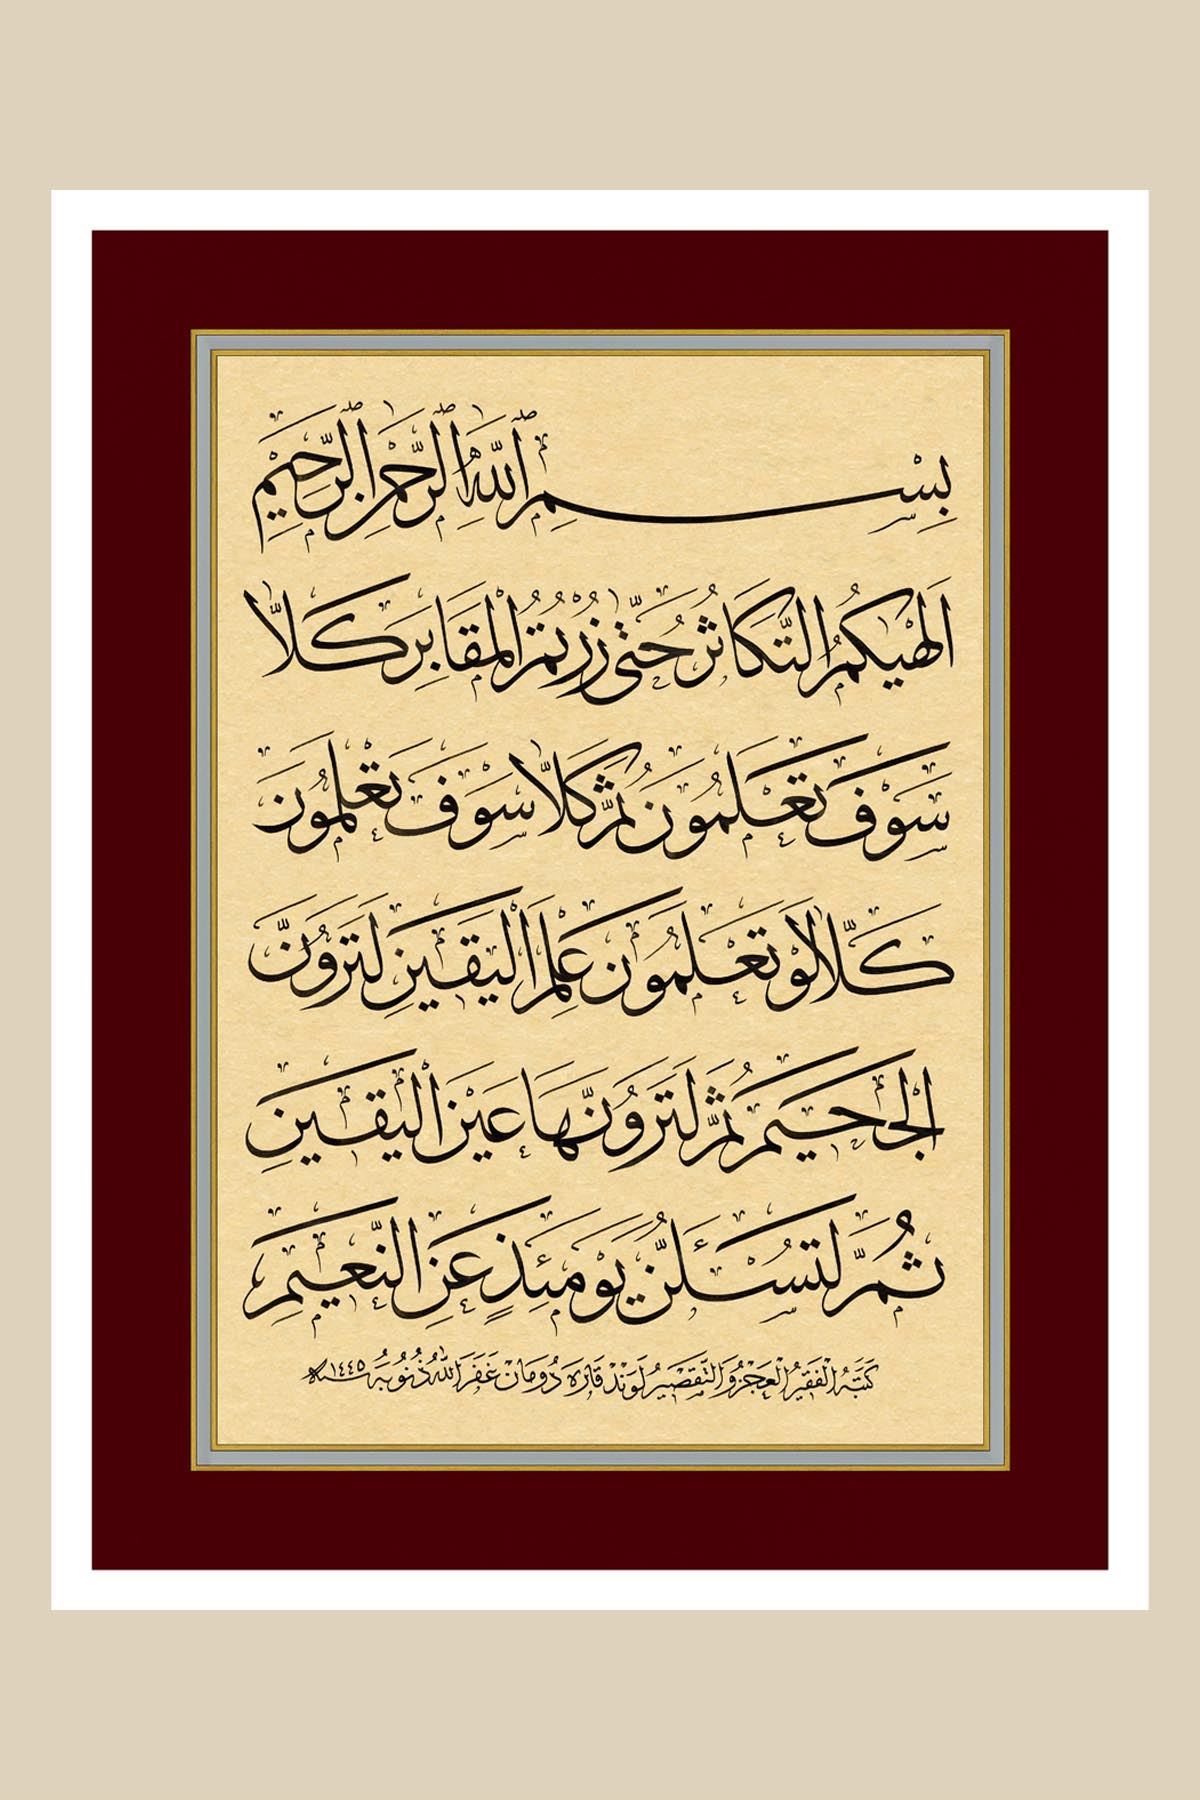 بِسْمِ اللّٰهِ الرَّحْمٰنِ الرَّحِيمِ
اَلْهٰيكُمُ التَّكَاثُرُ حَتّٰى زُرْتُمُ الْمَقَابِرَ كَلَّا
سَوْفَ تَعْلَمُونَ ثُمَّ كَلَّا سَوْفَ تَعْلَمُونَ
كَلَّا لَوْ تَعْلَمُونَ عِلْمَ الْيَقِينِ لَتَرَوُنَّ
الْجَحِيمَ ثُمَّ لَتَرَوُنَّهَا عَيْنَ الْيَقِينِ
ثُمَّ لَتُسْـَٔلُنَّ يَوْمَئِذٍ عَنِ النَّعِيمِ
كَتَبَهُ الْفَقِيرُ الْعَجْزُ وَ التَّقْصِيرُ لَوَنْد قَارَه دُومَانْ غَفَرَ اللّٰهُ ذُنُوبَهُ سنه ١٤٤٥